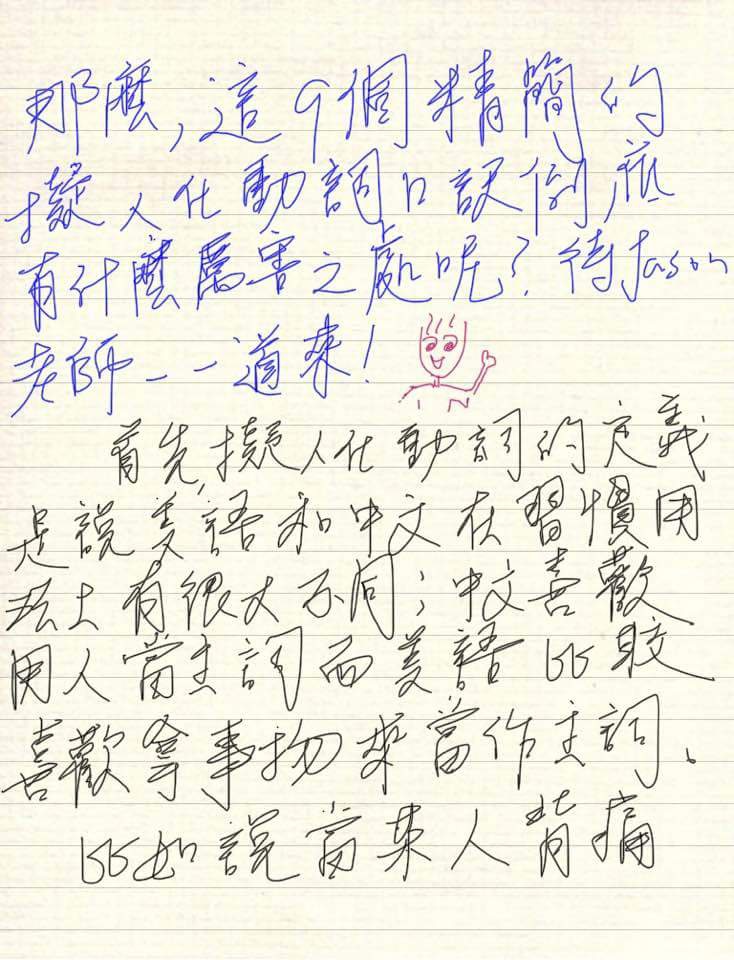 那麼,這9個精簡的
擬人化動詞口訣倒底
有什麼厲害之處呢?待Jason
老師一一道來!
首先,擬人化動詞的定義
是說美語和中文在習慣用
法上有很大不同;中文喜歡
用人當主詞而美語比較
喜歡拿事物來當作主詞。
比如說當某人背痛